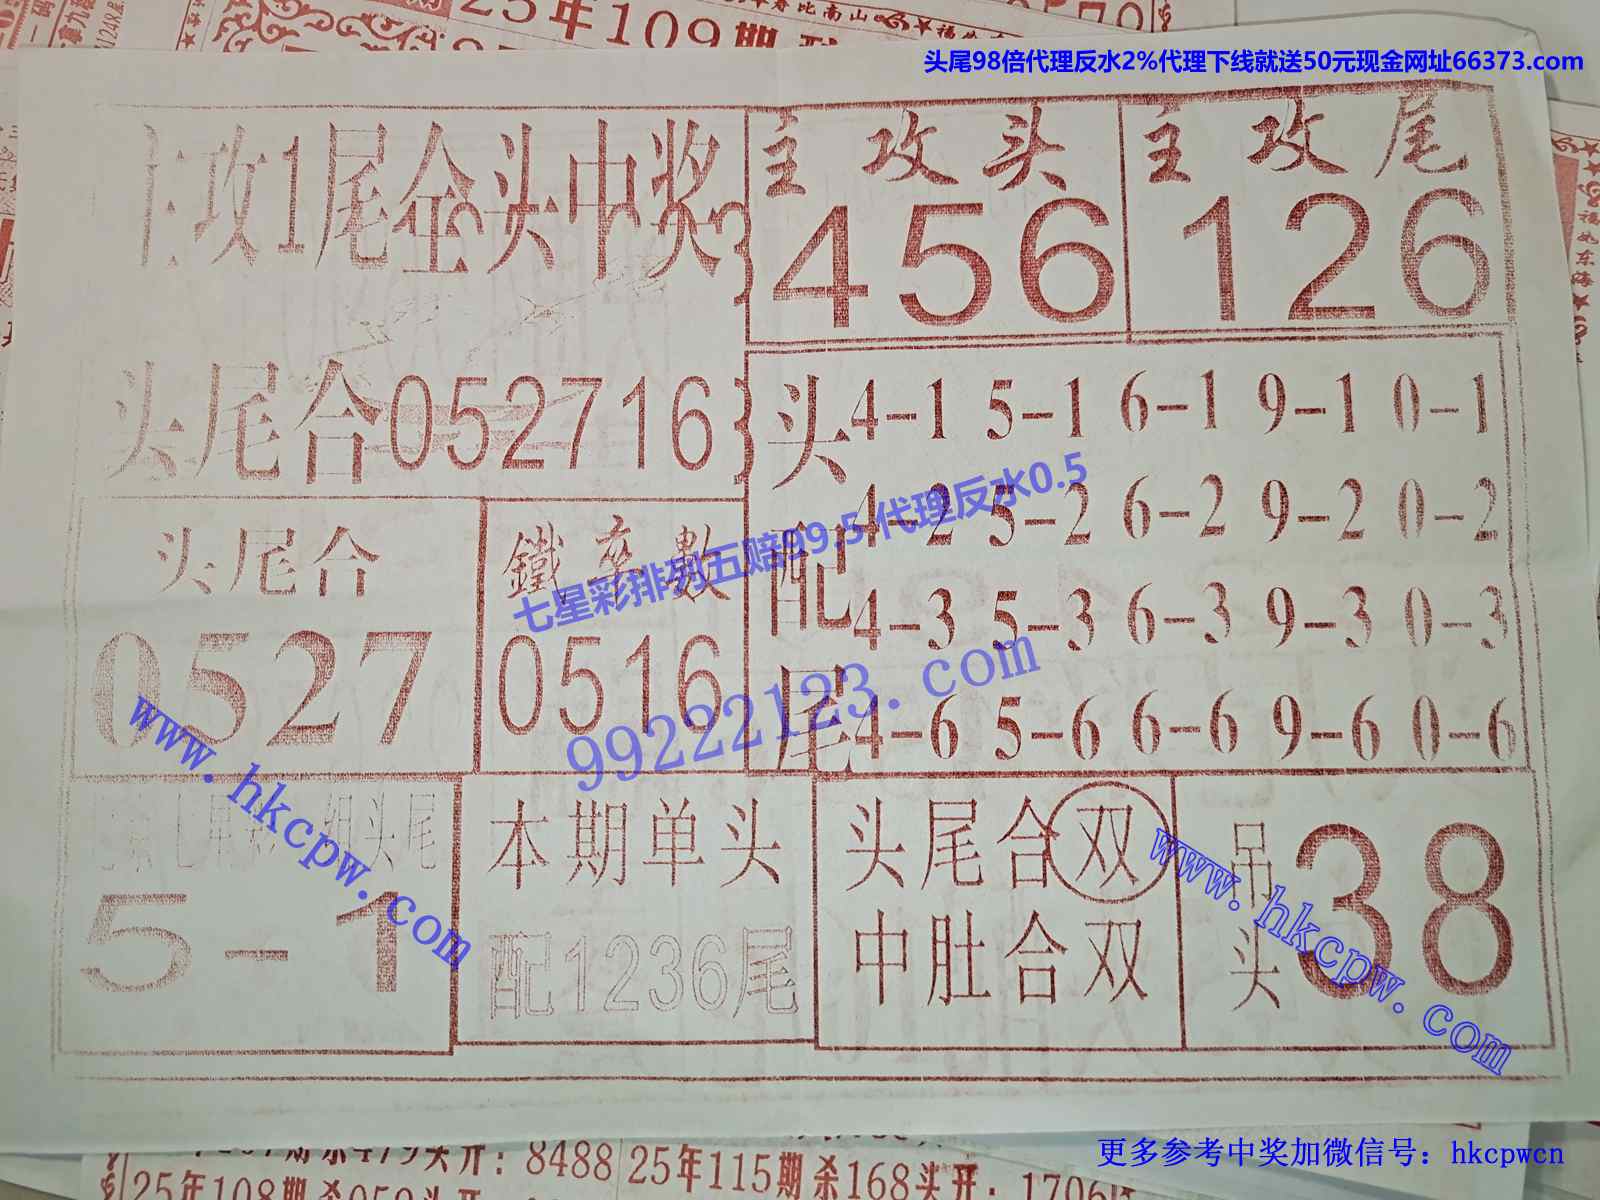 25年109期
头尾98倍代理反水2%代理下线就送50元现金网址66373.com
主攻1尾全头中奖
主攻头
456
主攻尾
126
头尾合052716
头配尾
4-1 5-1 6-1 9-1 0-1
4-2 5-2 6-2 9-2 0-2
4-3 5-3 6-3 9-3 0-3
4-6 5-6 6-6 9-6 0-6
头尾合
0527
鐵卒數
0516
七星彩排列五赔99.5 代理反水0.5
99222123.com
www.hkcpw.com
七星彩一组头尾
5-1
本期单头
配1236尾
头尾合双
中肚合双
吊头
38
www.hkcpw.com
更多参考中奖加微信号：hkcpwcn
期杀479头开：8488
25年115期杀168头开：1706
25年108期杀050头开
福如东海